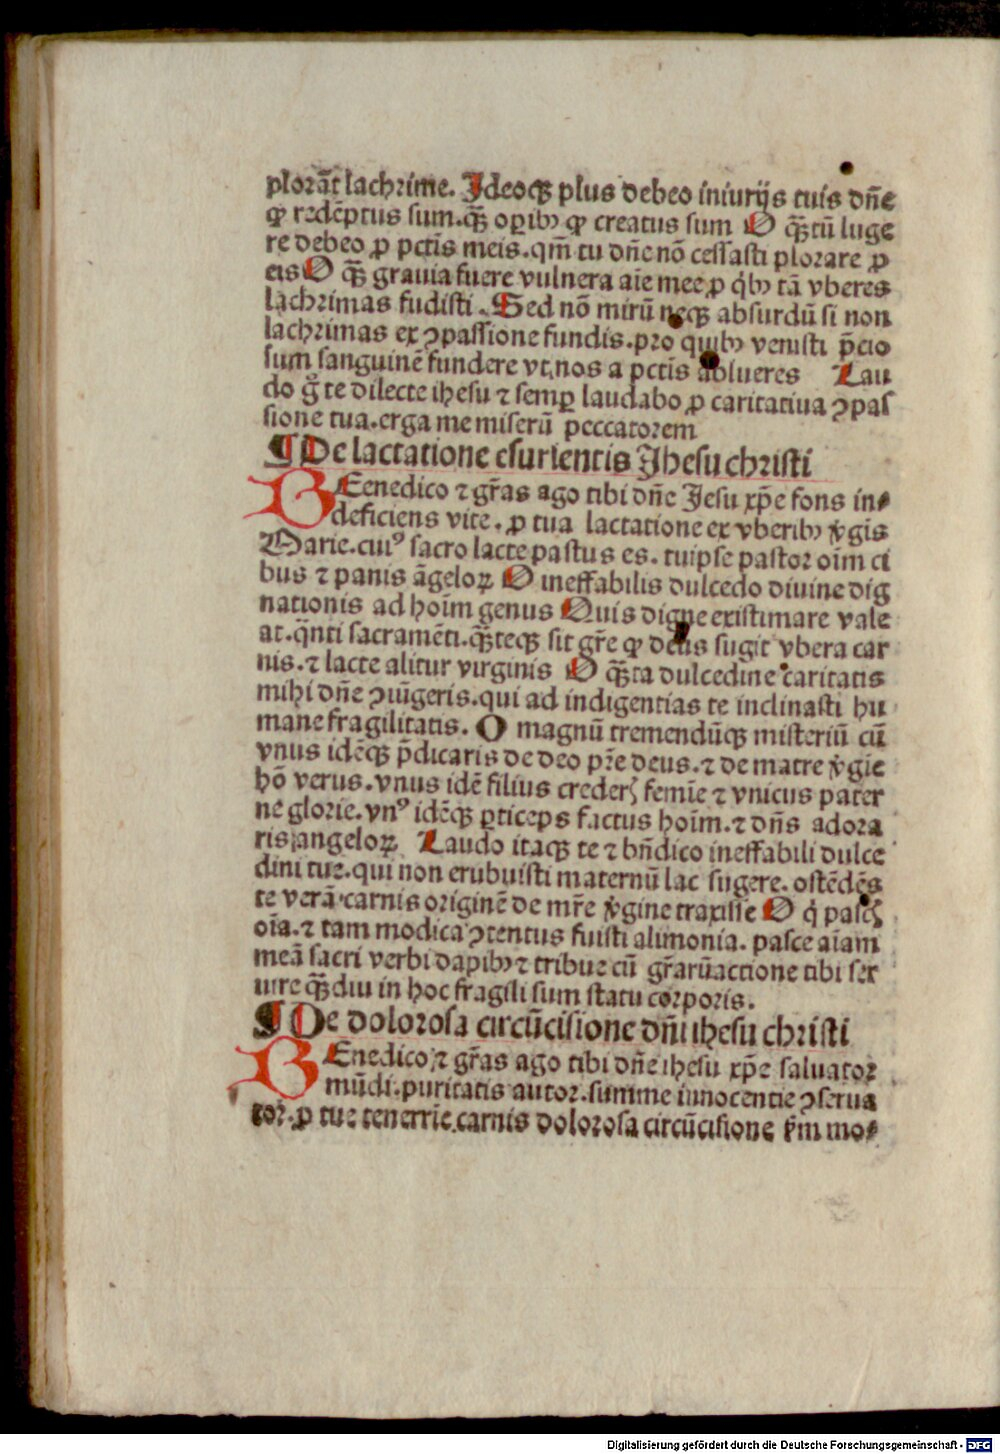 plorãt lachrime. Ideoqꝫ plus debeo iniurijs tuis dñe
ꝙ redẽptus sum.qꝫ̃ oꝑibꝰ ꝙ creatus sum O qꝫ̃tũ luge
re debeo ꝓ pctĩs meis.qm̃ tu dñe nõ cessasti plorare ꝓ
eis O qꝫ̃ grauia fuere vulnera aĩe mee ꝓ q̇bꝫ tã vberes
lachrimas fudisti. Sed nõ mirũ neqꝫ absurdũ si non
lachrimas ex ꝯpassione fundis.pro quibꝫ venisti p̃cio
sum sanguinẽ fundere vt nos a pctĩs ablueres Lau
do g̊ te dilecte ihesu ⁊ semꝑ laudabo ꝓ caritatiua ꝯpas
sione tua.erga me miserũ peccatorem
¶ De lactatione esurientis Jhesu christi
BEenedico ⁊ gr̃as ago tibi dñe Jesu xp̃e fons in⸗
deficiens vite. ꝓ tua lactatione ex vberibꝫ ṽgĩs
Marie.cuiꝰ sacro lacte pastus es. tuipse pastor oĩm ci
bus ⁊ panis ãgeloꝝ O ineffabilis dulcedo diuine dig
nationis ad hoĩm genus Quis digne existimare vale
at.q̃nti sacramẽti.qꝫ̃teqꝫ sit gr̃e ꝙ deus sugit vbera car
nis.⁊ lacte alitur virginis O qꝫ̃ta dulcedine caritatis
mihi dñe ꝯiũgeris.qui ad indigentias te inclinasti hu
mane fragilitatis. O magnũ tremendũqꝫ misteriũ cũ
vnus idẽqꝫ p̃dicaris de deo pr̃e deus.⁊ de matre ṽgĩe
hõ verus.vnus idẽ filius crederꝭ femĩe ⁊ vnicus pater
ne glorie.vnꝰ idẽqꝫ ꝑticeps factus hoĩm.⁊ dñs adora
ris angeloꝝ Laudo itaqꝫ te ⁊ bñdico ineffabili dulce
dini tue.qui non erubuisti maternũ lac sugere. ostẽdẽs
te verã carnis originẽ de mr̃e ṽgine traxisse O q̇ pascꝭ
oĩa.⁊ tam modica ꝯtentus fuisti alimonia. pasce aĩam
meã sacri verbi dapibꝫ ⁊ tribue cũ gr̃arũactione tibi ser
uire qꝫ̃diu in hoc fragili sum statu corporis.
¶ De dolorosa circũcisione dñi ihesu christi
BEnedico ⁊ gr̃as ago tibi dñe ihesu xp̃e saluator
mũdi.puritatis autor.summe innocentie ꝯserua
tor.ꝓ tue tenerrĩe.carnis dolorosa circũcisione k̃m mo⸗
Digitalisierung gefördert durch die Deutsche Forschungsgemeinschaft - DFG